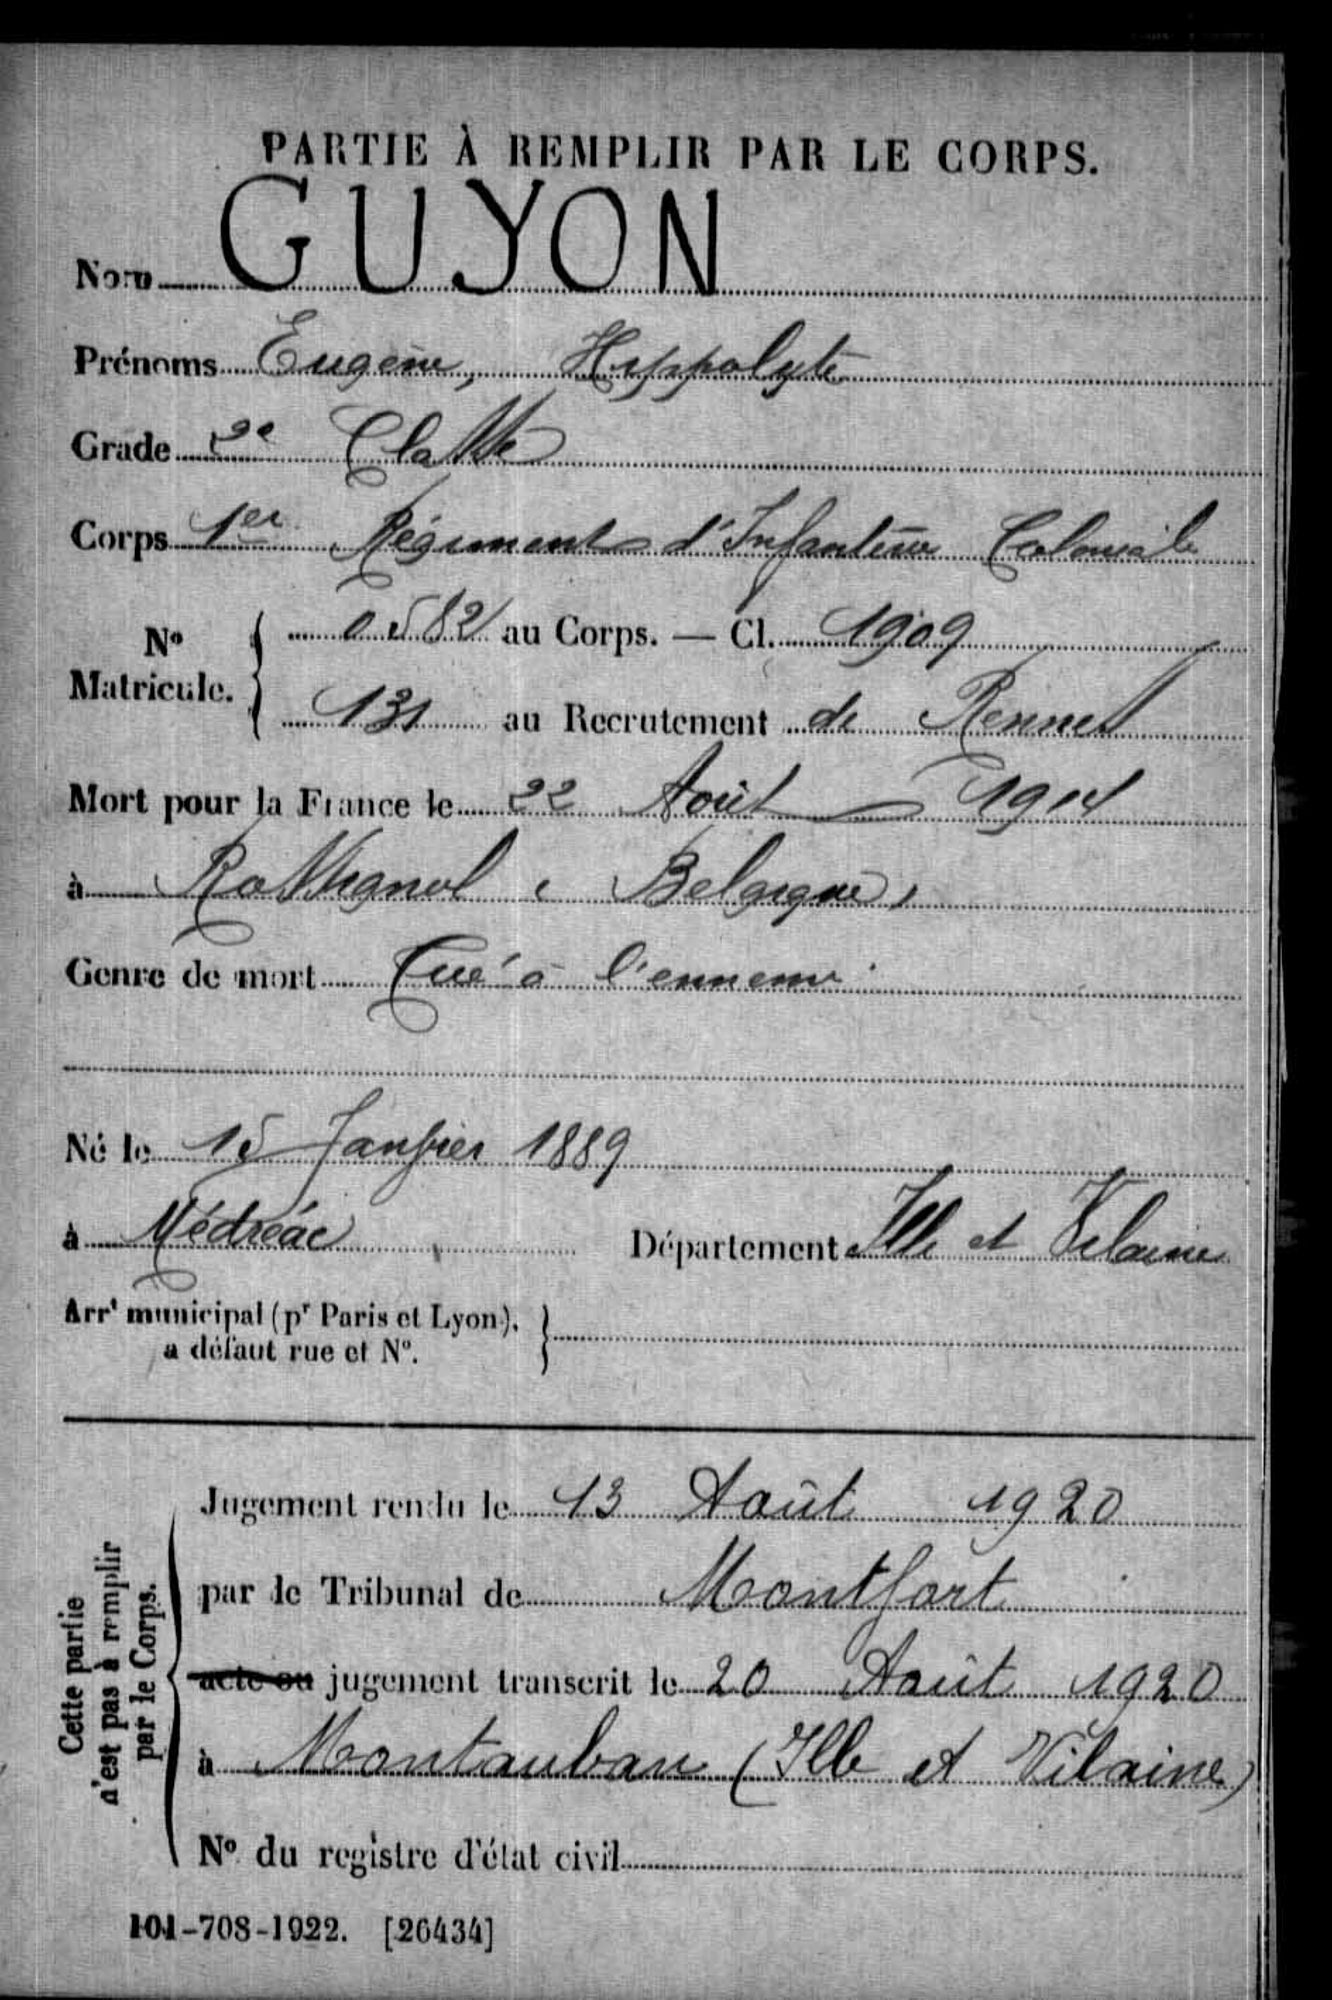 PARTIE À REMPLIR PAR LE CORPS.
Nom GUYON
Prénoms Eugène, Hippolyte
Grade 2e Classe
Corps 1er Régiment d'Infanterie Coloniale
No Matricule. { 0582 au Corps. — Cl. 1909
131 au Recrutement de Rennes
Mort pour la France le 22 Août 1914
à Rossignol (Belgique)
Genre de mort Tué à l'ennemi
Né le 15 Janvier 1889
à Médréac Département Ille et Vilaine
Arrt municipal (pr Paris et Lyon),
a défaut rue et No.
Cette partie
n'est pas à remplir
par le Corps.
Jugement rendu le 13 Août 1920
par le Tribunal de Montfort
acte ou jugement transcrit le 20 Août 1920
à Montauban (Ille et Vilaine)
No du registre d'état civil
101-708-1922. [26434]